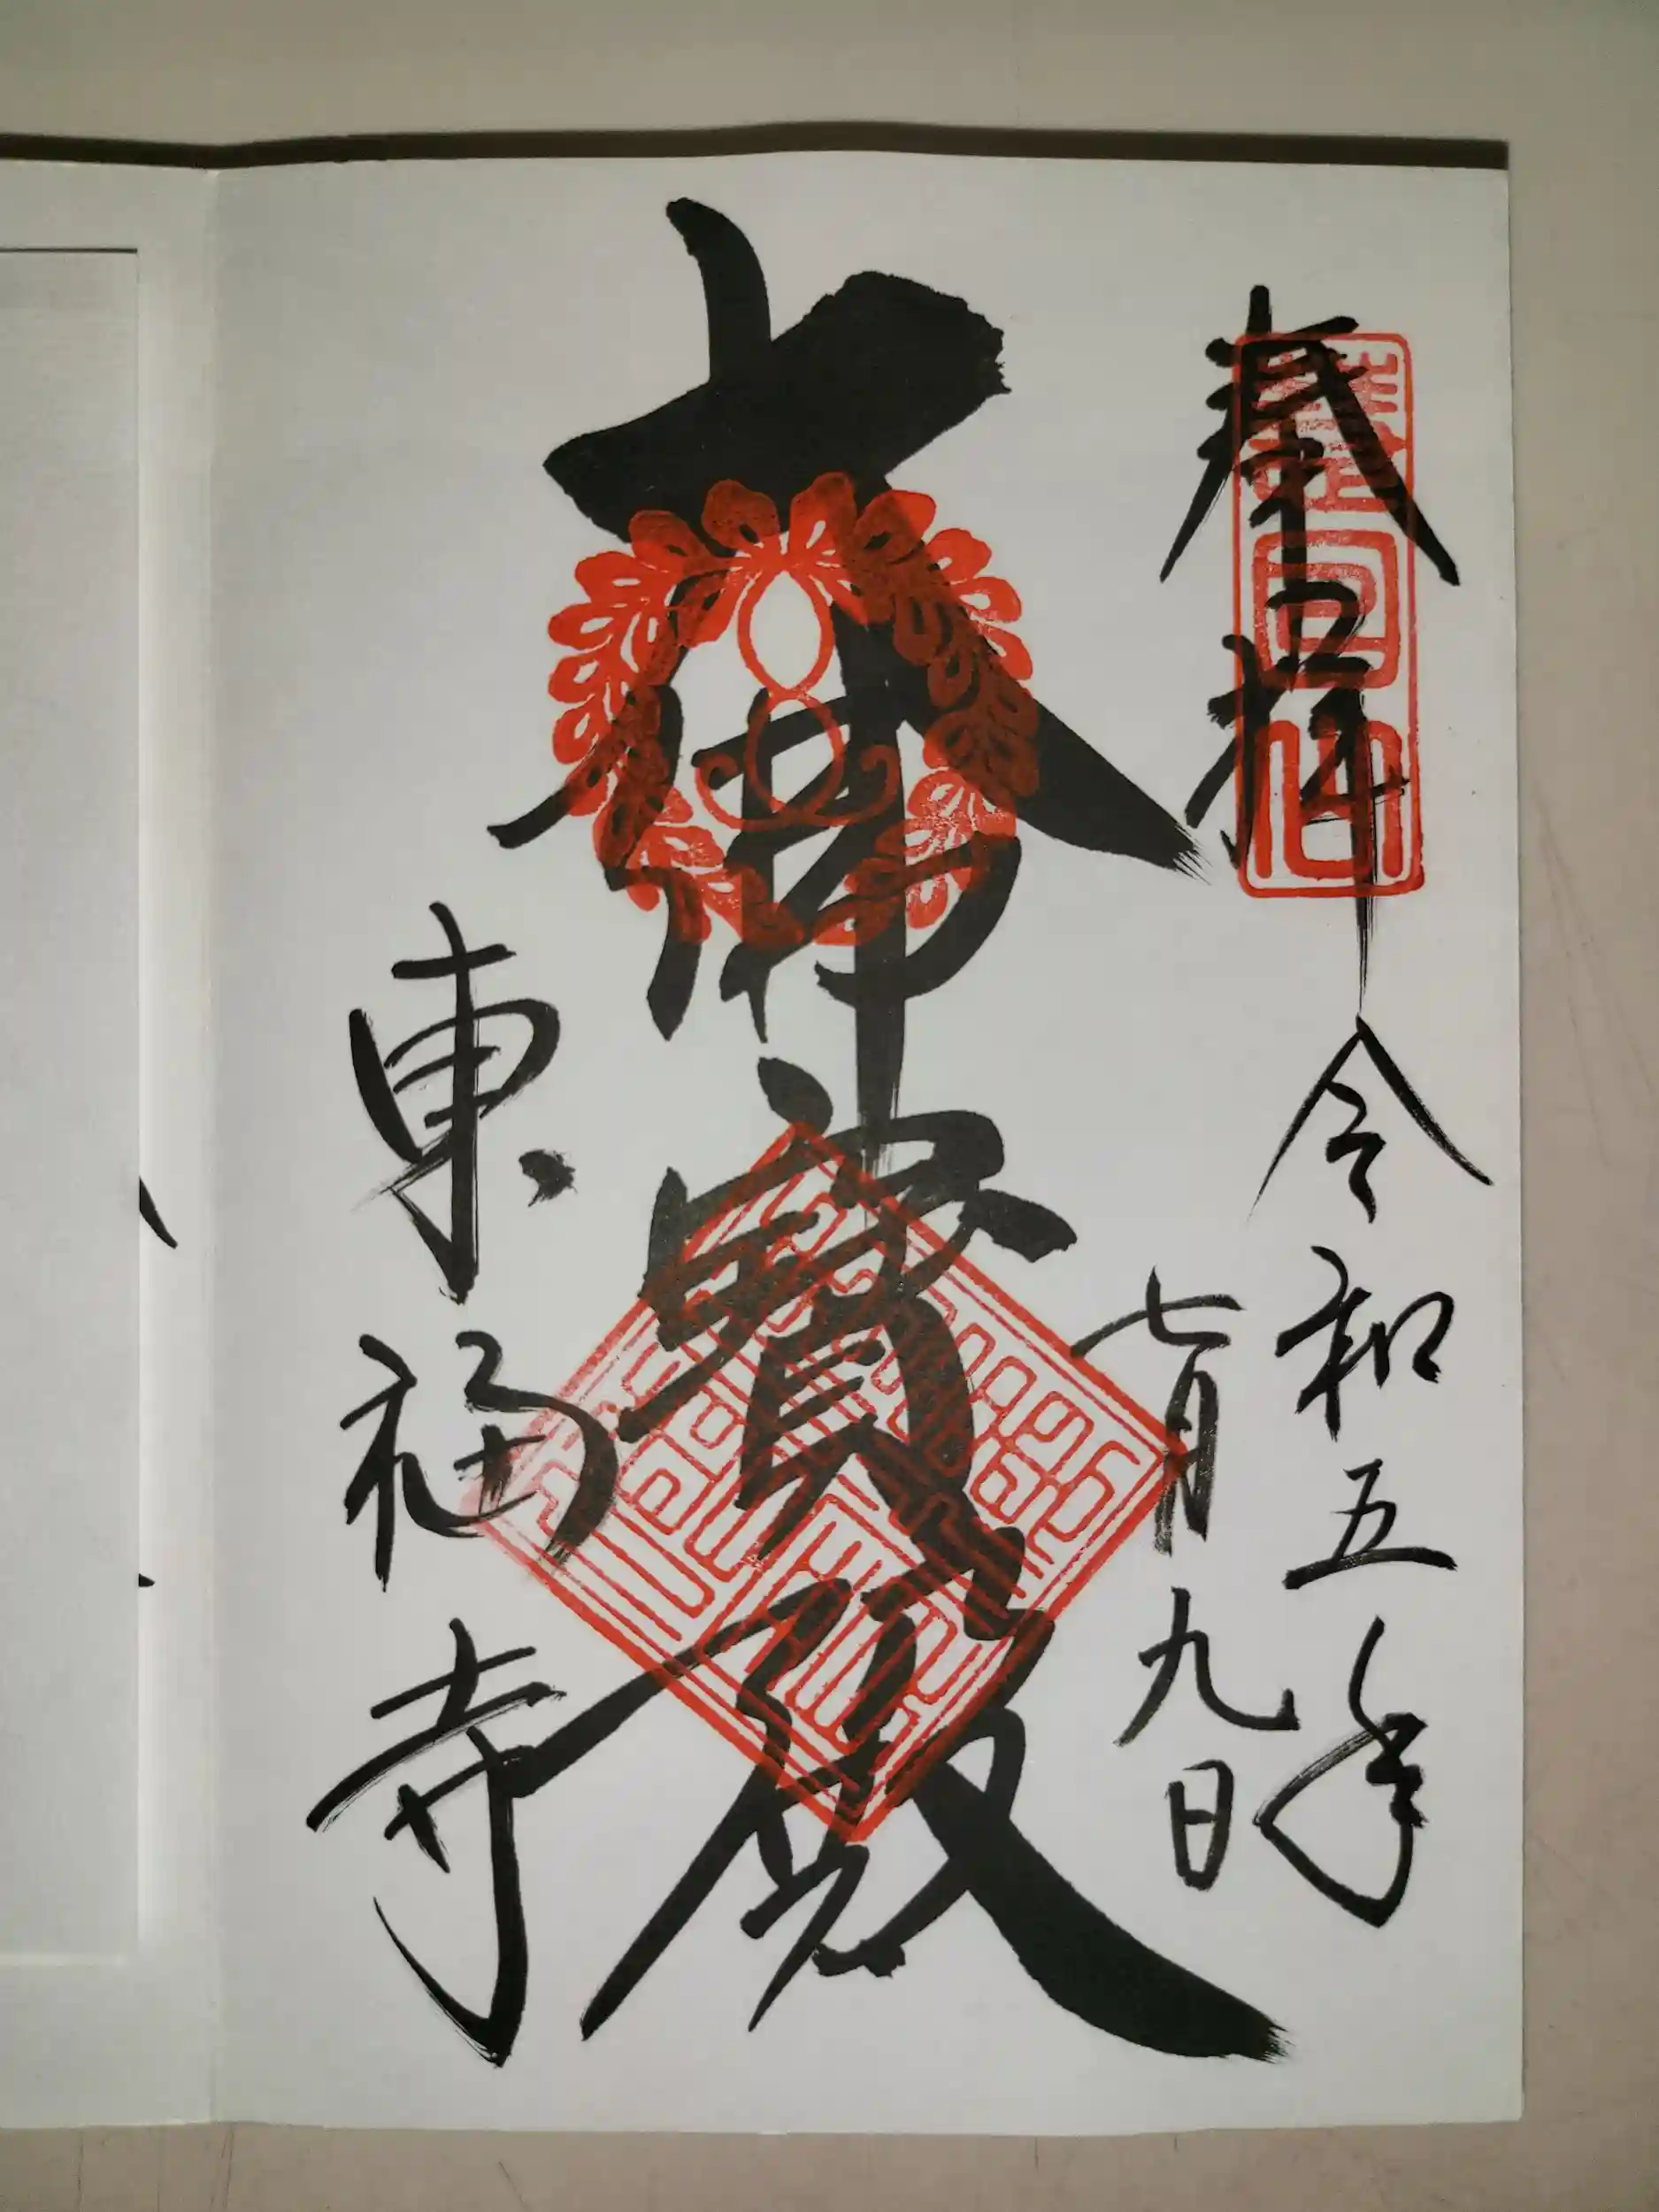 奉拝
令和五年
七月九日
大佛寶殿
東福寺
慧日山